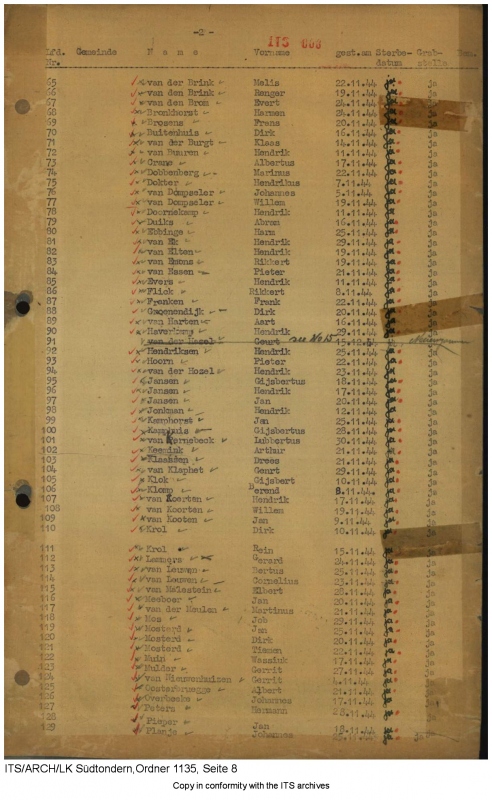 -2-
ITS 008
Lfd. Gemeinde N a m e Vorname gest.am Sterbe- Grab-
Nr. datum stelle
65 van der Brink Melis 22.11.44 ja
66 van den Brink Renger 19.11.44 ja
67 van den Brom Evert 24.11.44 ja
68 Bronkhorst Harmen 24.11.44 ja
69 Brosens Frans 20.11.44 ja
70 Buitenhuis Dirk 16.11.44 ja
71 van der Burgt Klaas 14.11.44 ja
72 van Buuren Hendrik 11.11.44 ja
73 Crane Albertus 17.11.44 ja
74 Dobbenberg Marinus 22.11.44 ja
75 Dokter Hendrikus 7.11.44 ja
76 van Dompseler Johannes 5.11.44 ja
77 van Dompseler Willem 19.11.44 ja
78 Doornekamp Hendrik 11.11.44 ja
79 Duiks Abram 16.11.44 ja
80 Ebbinge Harm 25.11.44 ja
81 van Ek Hendrik 29.11.44 ja
82 van Elten Hendrik 19.11.44 ja
83 van Rikkert 19.11.44 ja
84 van Essen Pieter 21.11.44 ja
85 Evers Hendrik 11.11.44 ja
86 Fliek Rikkert 8.11.44 ja
87 Franken Frank 22.11.44 ja
88 Groenendijk Dirk 20.11.44 ja
89 van Harten Aart 16.11.44 ja
90 Haverkamp Hendrik 29.11.44 ja
91 van der Hasel Geurt see No 15.12.44
92 Hendriksen Hendrik 25.11.44 ja
93 Hoorn Pieter 22.11.44 ja
94 van der Hosel Hendrik 23.11.44 ja
95 Jansen Gijsbertus 18.11.44 ja
96 Jansen Hendrik 17.11.44 ja
97 Jansen Jan 20.11.44 ja
98 Jonkman Hendrik 12.11.44 ja
99 Kamphorst Jan 25.11.44 ja
100 Kamphuis Gijsbertus 28.11.44 ja
101 van Kernebeck Lubbertus 30.11.44 ja
102 Keemink Arthur 21.11.44 ja
103 Klaassen Drees 21.11.44 ja
104 van Klaphet Geurt 29.11.44 ja
105 Klok Gijsbert 10.11.44 ja
106 Klomp Berend 8.11.44 ja
107 van Koorten Hendrik 17.11.44 ja
108 van Koorten Willem 19.11.44 ja
109 van Kooten Jan 9.11.44 ja
110 Krol Dirk 10.11.44 ja
111 Krol Rein 15.11.44 ja
112 Lammers Gerard 24.11.44 ja
113 van Leuwen Bertus 25.11.44 ja
114 van Leuwen Cornelius 23.11.44 ja
115 van Malestein Elbert 28.11.44 ja
116 Jan 20.11.44 ja
117 van der Meulen Martinus 21.11.44 ja
118 Mos Job 29.11.44 ja
119 Mosterd Jan 25.11.44 ja
120 Mosterd Dirk 20.11.44 ja
121 Mosterd Tiemen 22.11.44 ja
122 Muin Wassink 17.11.44 ja
123 Mulder Gerrit 27.11.44 ja
124 van Nieuwenhuizen Gerrit 4.11.44 ja
125 Oosterbroegge Albert 21.11.44 ja
126 Overbeeke Johannes 17.11.44 ja
127 Peters Hermann 28.11.44 ja
128 Pieper Jan 18.11.44 ja
129 Plenje Johannes ja
ITS/ARCH/LK Südtondern,Ordner 1135, Seite 8
Copy in conformity with the ITS archives